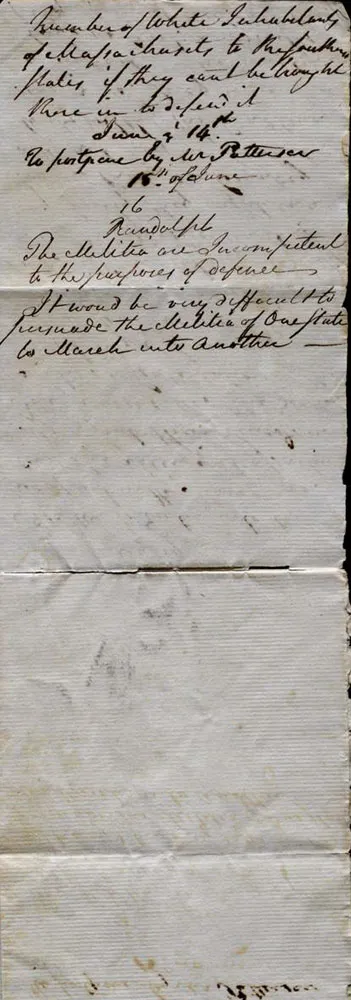 Number of White Inhabitants
of Massachusets to the Southern
States if they cant be brought
there in to defend it
June 14th
To postpone by Mr Patterson
15th of June
16
Randolph
The Militia are Incompetent
to the purposes of defence
It woud be very difficult to
persuade the Militia of One State
to March into Another —